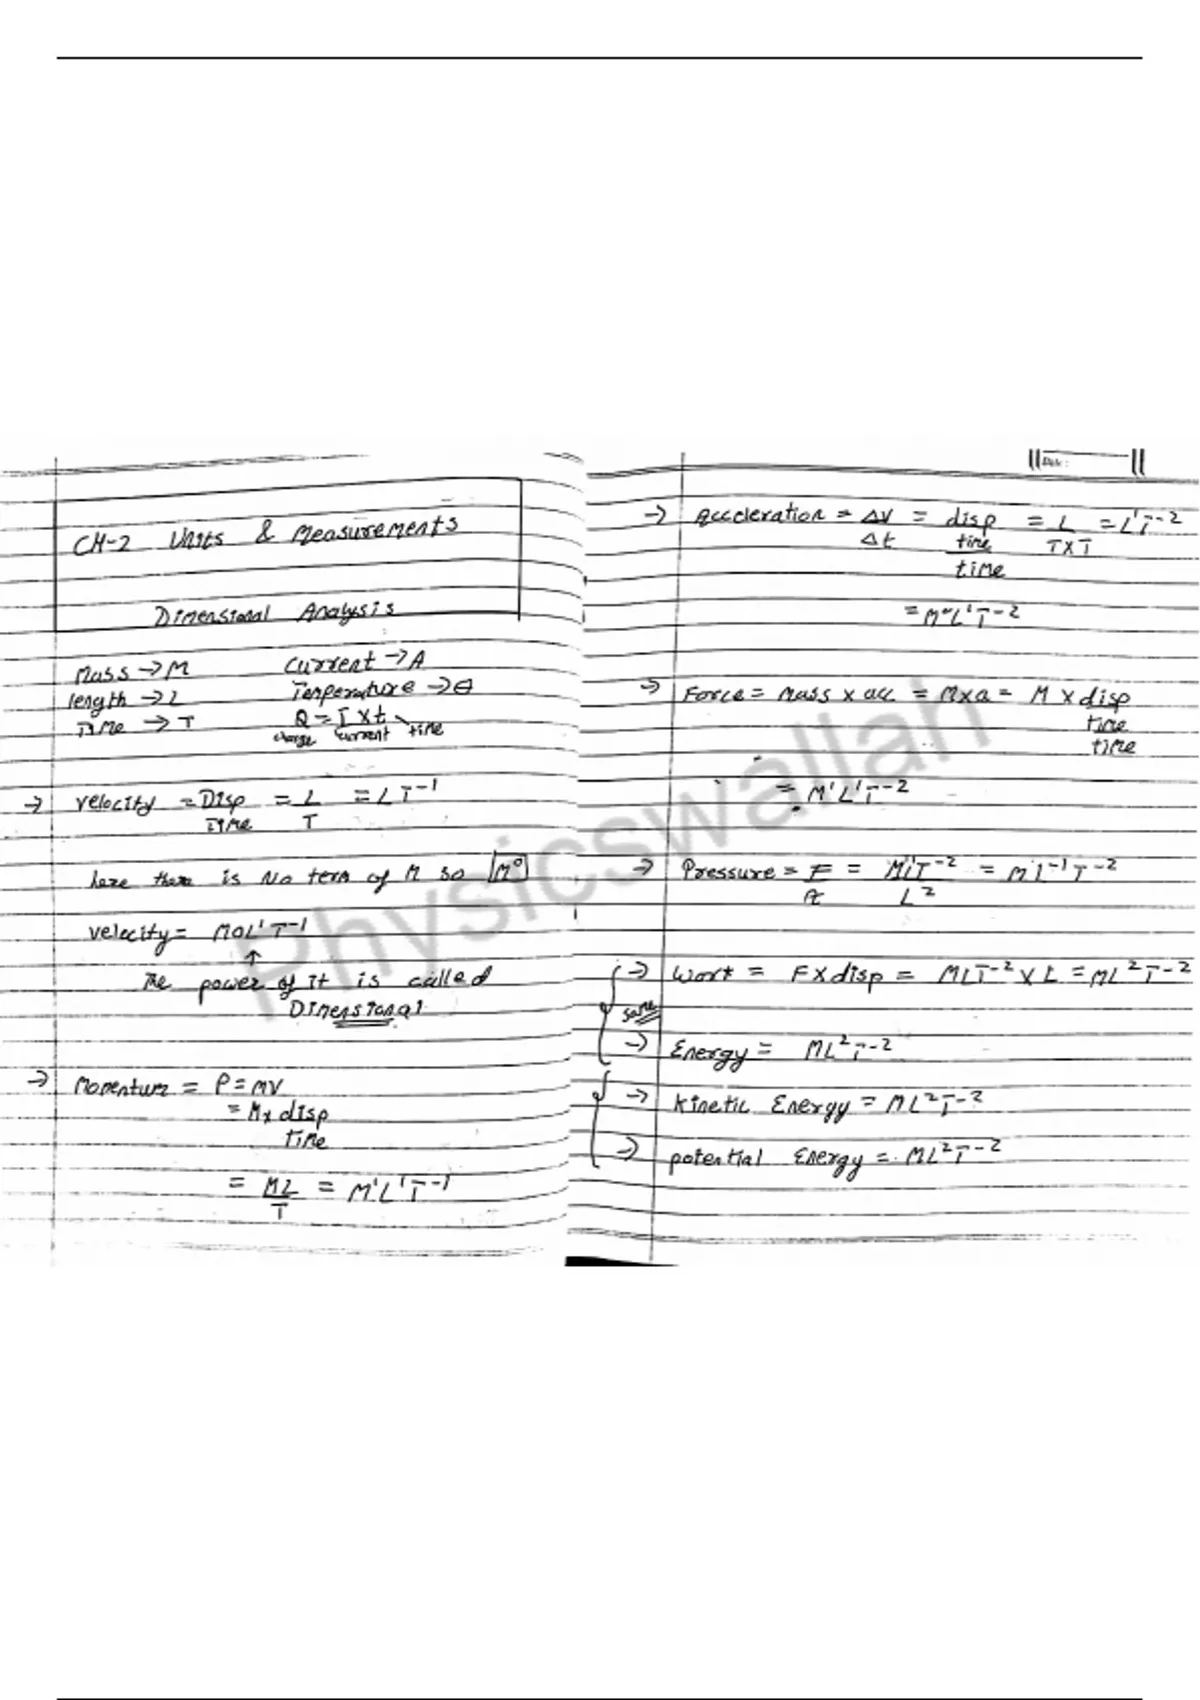 CH-2 Units & Measurements
Dimensional Analysis
Mass → M Current → A
length → L Temperature → θ
Time → T Q = I x t time
charge current
→ velocity = Disp = L = L T⁻¹
Time T
here there is No term of M so M⁰
velocity = M0L¹T⁻¹
↑
The power of it is called
Dimensional
→ Momentum = P = MV
= M x disp
time
= ML = M¹L¹T⁻¹
T
Date:
→ Accleration = ΔV = disp = L = L¹T⁻²
Δt time TXT
time
= M⁰L¹T⁻²
→ Force = Mass x acc = M x a = M x disp
time
time
= M¹L¹T⁻²
→ Pressure = F = ML¹T⁻² = ML⁻¹T⁻²
A L²
→ Work = F X disp = MLT⁻² X L = ML²T⁻²
same
→ Energy = ML²T⁻²
→ Kinetic Energy = ML²T⁻²
→ potential Energy = ML²T⁻²
Physicswallah